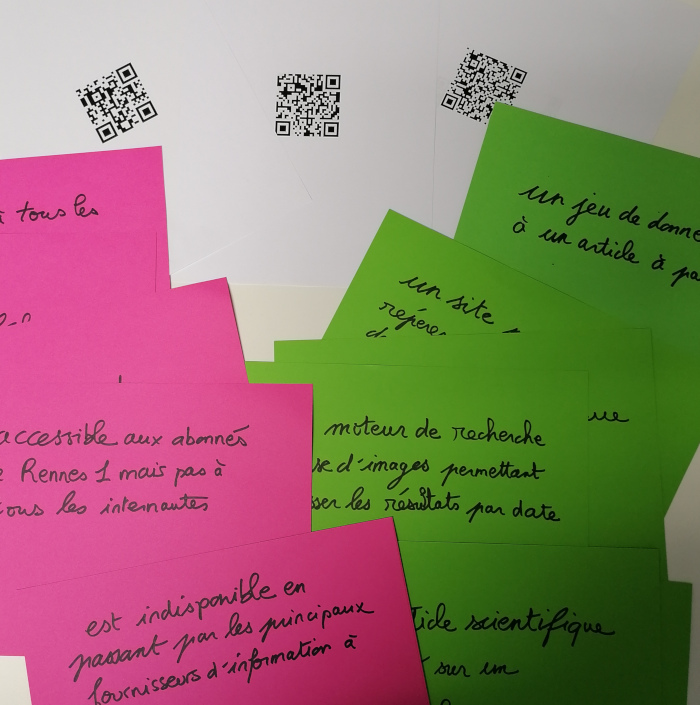 à tous les
accessible aux abonnés
Rennes 1 mais pas à
tous les internautes
est indisponible en
passant par les principaux
fournisseurs d'information à
un jeu de donne
à un article à pa
un site
repére
ue
moteur de recherche
se d'images permettant
sser les résultats par date
ticle scientifique
sur un